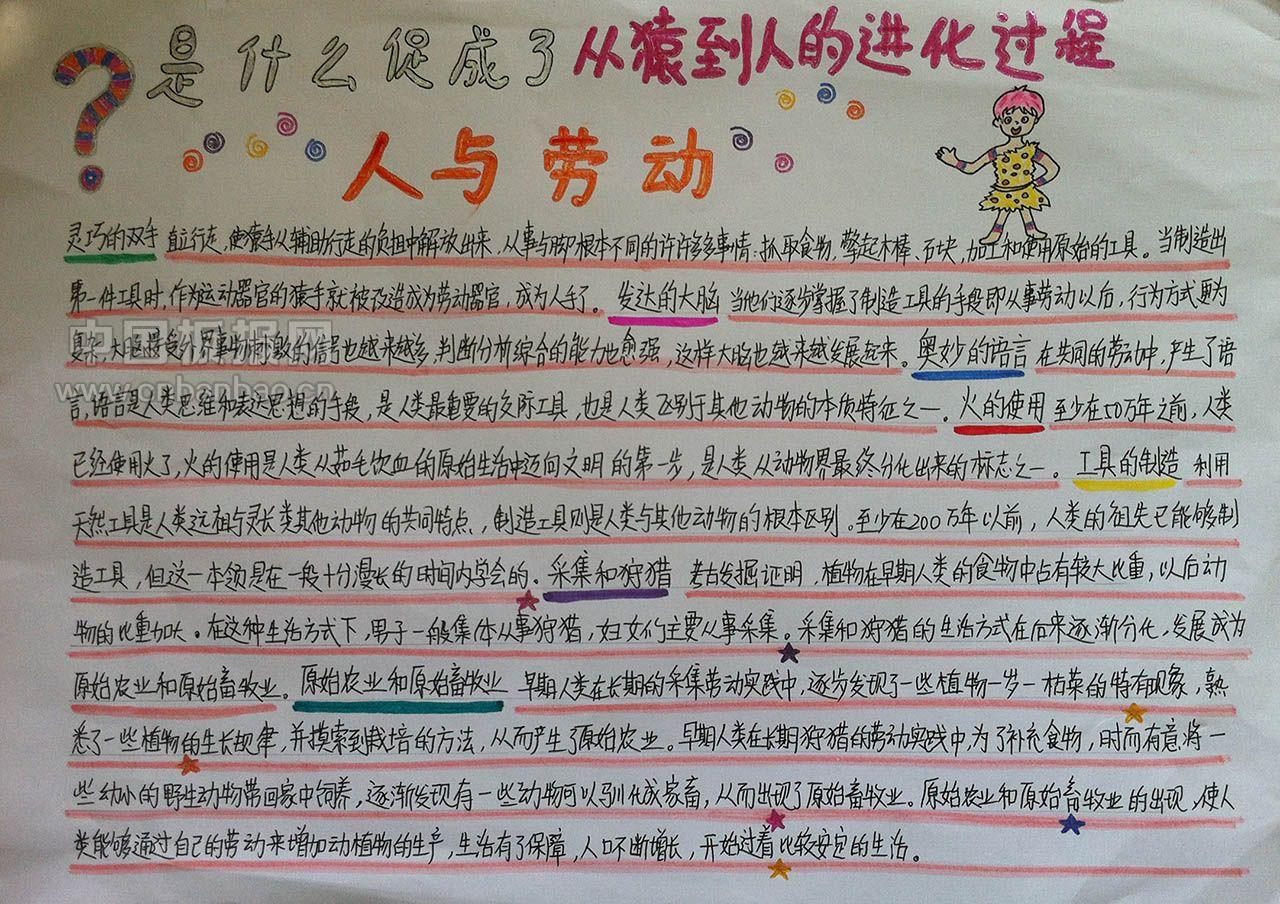 是什么促成了从猿到人的进化过程
人与劳动
灵巧的双手 直立行走,使猿手从辅助行走的负担中解放出来,从事与脚根本不同的许许多多事情:抓取食物,擎起木棒、石块,加工和使用原始的工具。当制造出
第一件工具时,作为运动器官的猿手就被改造成为劳动器官,成为人手了。发达的大脑 当他们逐步掌握了制造工具的手段即从事劳动以后,行为方式更为
复杂,大脑接受外界事物刺激的信号也越来越多,判断分析综合的能力也愈强,这样大脑也越来越发展起来。奥妙的语言 在共同的劳动中,产生了语
言,语言是人类思维和表达思想的手段,是人类最重要的交际工具,也是人类区别于其他动物的本质特征之一。火的使用 至少在50万年之前,人类
已经使用火了,火的使用是人类从茹毛饮血的原始生活中迈向文明的第一步,是人类从动物界最终分化出来的标志之一。工具的制造 利用
天然工具是人类远祖与灵长类其他动物的共同特点,制造工具则是人类与其他动物的根本区别。至少在200万年以前,人类的祖先已能够制
造工具,但这一本领是在一段十分漫长的时间内学会的。采集和狩猎 考古发掘证明,植物在早期人类的食物中占有较大比重,以后动
物的比重加大。在这种生活方式下,男子一般集体从事狩猎,妇女们主要从事采集。采集和狩猎的生活方式在后来逐渐分化,发展成为
原始农业和原始畜牧业。原始农业和原始畜牧业 早期人类在长期的采集劳动实践中,逐步发现了一些植物一岁一枯荣的特有现象,熟
悉了一些植物的生长规律,并摸索到栽培的方法,从而产生了原始农业。早期人类在长期狩猎的劳动实践中,为了补充食物,时而有意将一
些幼小的野生动物带回家中饲养,逐渐发现有一些动物可以驯化成家畜,从而出现了原始畜牧业。原始农业和原始畜牧业的出现,使人
类能够通过自己的劳动来增加动植物的生产,生活有了保障,人口不断增长,开始过着比较安定的生活。
中国板报网
www.cnbanbao.cn